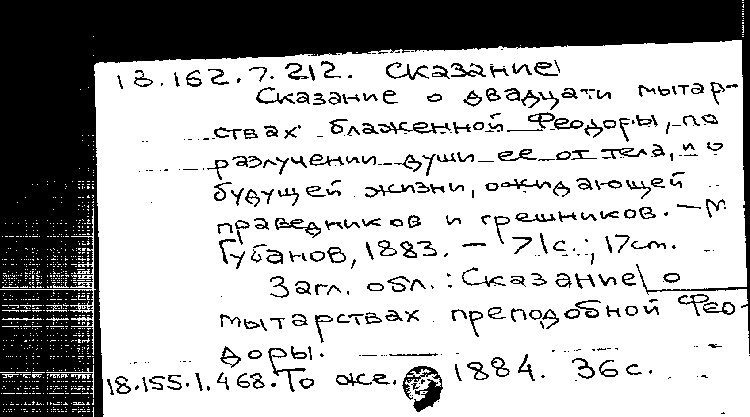 18.162.7.212. Сказание
Сказание о двадцати мытар-
ствах блаженной Феодоры, по
разлучении души ее от тела, и о
будущей жизни, ожидающей
праведников и грешников. — М.
Губанов, 1883. — 71с.; 17см.
Загл. обл.: Сказание о
мытарствах преподобной Фео-
доры.
18.155.1.468. То же. 1884. 36с.